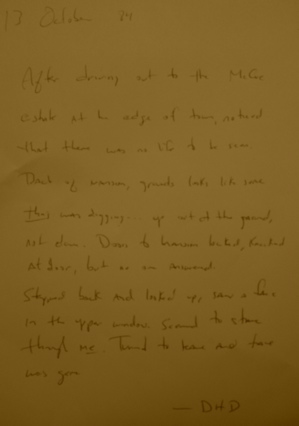 13 October 24
After driving out to the McCoe
estate at the edge of town, noticed
that there was no life to be seen.
Back of mansion, grounds looks like some
thing was digging... up out of the ground,
not down. Doors to mansion locked, knocked
at door, but no one answered.
Stepped back and looked up, saw a face
in the upper window. Seemed to stare
through me. Turned to leave and face
was gone
— DHD